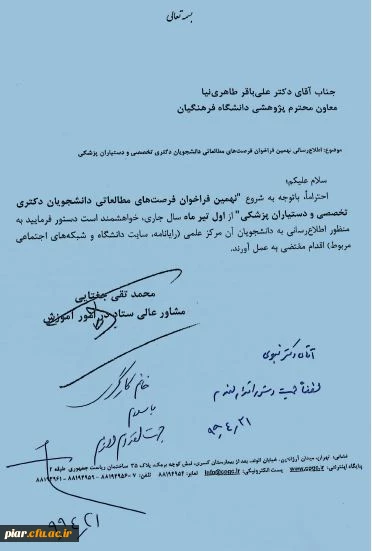 بسمه تعالی
جناب آقای دکتر علی‌باقر طاهری‌نیا
معاون محترم پژوهشی دانشگاه فرهنگیان
موضوع: اطلاع‌رسانی نهمین فراخوان فرصت‌های مطالعاتی دانشجویان دکتری تخصصی و دستیاران پزشکی
سلام علیکم؛
احتراماً، باتوجه به شروع "نهمین فراخوان فرصت‌های مطالعاتی دانشجویان دکتری
تخصصی و دستیاران پزشکی" از اول تیر ماه سال جاری، خواهشمند است دستور فرمایید به
منظور اطلاع‌رسانی به دانشجویان آن مرکز علمی (رایانامه، سایت دانشگاه و شبکه‌های اجتماعی
مربوط) اقدام مقتضی به عمل آورند.
محمد تقی جغتایی
مشاور عالی ستاد در امور آموزش
آقای دکتر نبوی
لطفاً جهت دستور اقدام لازم
۹۹,۴,۲۱
خانم کارگر
با سلام
جهت اقدام لازم
نشانی: تهران، میدان آرژانتین، خیابان الوند، بعد از بیمارستان کسری، نبش کوچه برمک، پلاک ۲۵ ساختمان ریاست جمهوری طبقه ۲
پایگاه اینترنتی: www.cogc.ir پست الکترونیکی: info@cogc.ir نمابر: ۸۸۱۹۴۹۵۴ تلفن: ۷-۸۸۱۹۴۹۵۶ - ۸۸۱۹۴۹۵۹ - ۸۸۱۹۴۹۶۱
۹۹,۴,۲۱
piar.cfu.ac.ir